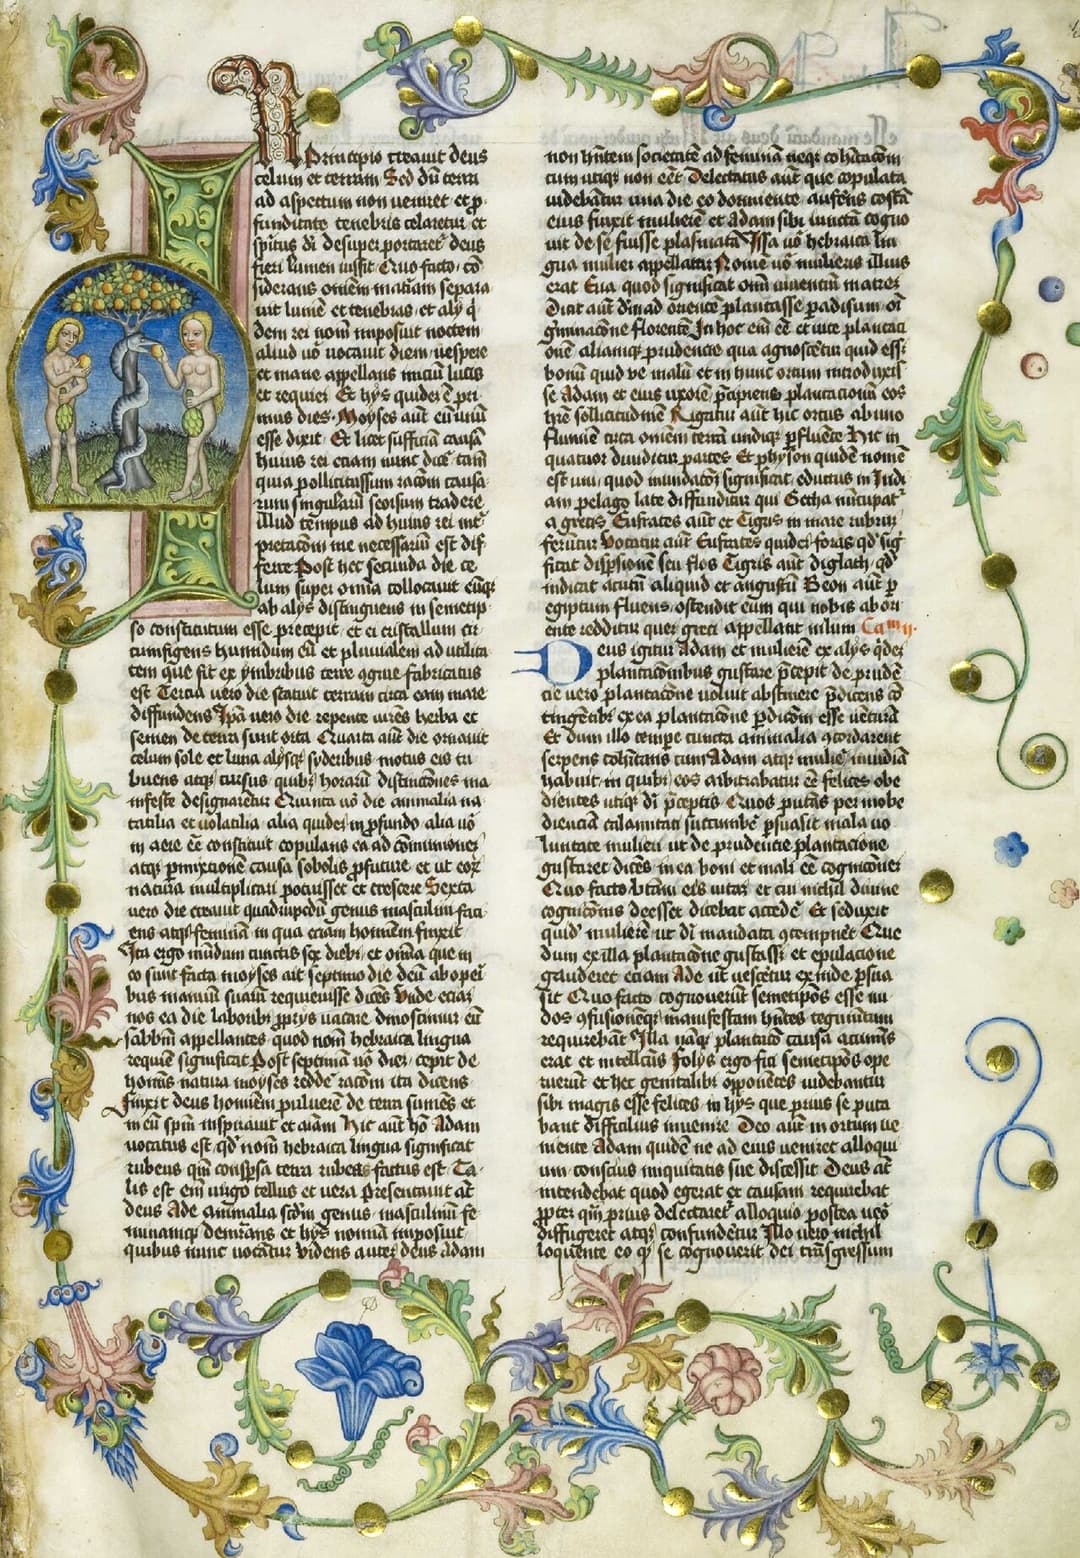 In Principio creauit deus
celum et terram Sed dū terra
ad aspectum non veniret et p̱
funditate tenebris celaretur et
spūs dī desuper portaret᷑ deus
fieri lumen iussit Quo facto cō
siderans omēm matiam separa
uit lumē et tenebras et alij q̄
dem rei nomē imposuit noctem
aliud vō vocauit diem vespere
et mane appellans iniciū lucis
et requiei Et hijs quidē ē pri
mus dies Moyses aūt eū vnū
esse dixit Et licet sufficiā causā
huius rei eciam nunc dicē tam̄
quia pollicitus sum racōm causa
rum singularū seorsum tradere
illud tempus ad huius rei int̄
pretacōm me necessariū est dif
ferre Post hec secunda die ce
lum super omīa collocauit eūq̨
ab alijs distinguens in semetip
so constitutum esse precepit et ei cristallum cir
cumfigens humidum eū et pluuialem ad vtilita
tem que fit ex ymbribus terre 9grue fabricatus
est Tercia vero die statuit terram circa eam mare
diffundens Ip̄a vero die repente virēs herba et
semen de terra sunt orta Quarta aūt die ornauit
celum sole et luna alijsq̨ syderibus motus eis tri
buens atq̨ cursus quibꝫ horarū distincciones ma
nifeste designarētur Quinta vō die animalia na
tatilia et volatilia alia quidē in p̱fundo alia vō
in aere eē constituit copulans ea ad cōmuniōnē
atq̨ p̱mixtionē causa sobolis p̱future et ut eoꝝ
natura multiplicari potuisset et crescere Sexta
vero die creauit quadrupedū genus masculinū faci
ens atq̨ feminā in qua eciam hominē finxit
Ita ergo mūdum cunctis sex diebꝫ et omīa que in
eo sunt facta moyses ait septimo die deū ab operi
bus manuū suarū requieuisse dicēs Vnde eciā
nos ea die laboribꝫ p̱prijs vacare dinoscimur eū
sabbm̄ appellantes quod nomē hebraica lingua
requiē significat Post septimā vō diē cepit de
homīs natura moyses reddē racōm ita dicens
Finxit deus hominē puluerē de terra sumēs et
in eū spm̄ inspirauit et aīam Hic aūt hō Adam
vocatus est qd̄ nomē hebraica lingua significat
rubeus qm̄ conspsa terra rubens factus est Ta
lis est enī virgo tellus et vera Presentauit aūt
deus Ade animalia scdm̄ genus masculinū fe
mininūq̨ demrans et hijs nomīa imposuit
quibus nunc vocātur Videns autē deus Adam
non hn̄tem societatē ad feminā neq̨ cohitacōm
cum vtiq̨ non eēt Delectatus aūt que copulata
videbātur vna die eo dormiente auferēs costā
eius finxit mulierē et Adam sibi iunctā cogno
uit de se fuisse plasmatā Issa vō hebraica lin
gua mulier appellatur Nomē vō mulieris illius
erat Eua quod significat om̄ viuentiū matrē
Dicit aūt dm̄ ad orientē plantasse padisum oī
germinacōne florentē In hoc enī eē et vite plantaci
onē aliamq̨ prudencie qua agnoscētur quid esset
bonū quid ve malū et in hunc ortum introduxis
se Adam et eius vxorē p̄cipiens plantacionū eos
hr̄e sollicitudinē Rigatur aūt hic ortus ab vno
flumīe circa omēm terrā vndiq̨ p̱fluēte Hic in
quatuor diuiditur partes Et physon quidē nomē
est vni quod inundacōm significat eductus in Indi
am pelago late diffunditur qui Getha nūcupat᷑
a grecis Eufrates aūt et Tigris in mare rubrū
ferūtur Vocatur aūt Eufrates quidē foras qd̄ sig
ficat dispsionē seu flos Tigris aūt diglath qd̄
indicat acutū aliquid et angustū Geon aūt p̱
egiptum fluens ostendit eum qui nobis ab ori
ente redditur quē greci appellant nilum Cam ij
Deus igitur Adam et mulierē ex alijs q̄dē
plantacionibus gustare p̄cepit de prudē
cie vero plantacōne voluit abstinere p̄dicens cō
tingētibꝫ ex ea plantacōne p̱dicōm esse vēturā
Et dum illo tempe cuncta animalia 9cordarent
serpens cohītans cum Adam atq̨ mulīe inuidiā
habuit in quibꝫ eos arbitrabatur eē felices obe
dientes vtiq̨ dī p̄ceptis Quos putās per inobe
dienciā calamitati succumbē p̱suasit mala vo
luntate mulieri vt de prudēcie plantacione
gustaret dicēs in ea boni et mali eē cognicionē
Quo facto btām eis vitā et cui nichil diuine
cognicōnis deesset dicebat accedē Et seduxit
quidē mulierē ut dī mandata 9tempnēt Que
dum ex illa plantacōne gustasset et epulacione
gauderet eciam Ade ut vescētur exinde p̱sua
sit Quo facto cognouerūt semetipōs esse nu
dos 9fusionēq̨ manifestam hn̄tes tegumentum
requirebāt Illa nāq̨ plantacō causa acumīs
erat et intellcūs Folijs ergo fici semetipōs ope
rierunt et hec genitalibꝫ opponētes videbantur
sibi magis esse felices in hijs que prius se puta
bant difficilius inuenire Deo aūt in ortum ve
niente Adam quidē ne ad eius veniret alloqui
um conscius iniquitatis sue discessit Deus aūt
intendebat quod egerat et causam requirebat
p̱pter qm̄ prius delectaret᷑ alloquio postea vō
diffugeret atq̨ confundētur Illo vero nichil
loquente eo q̱ se cognouerit dei trāsgressum